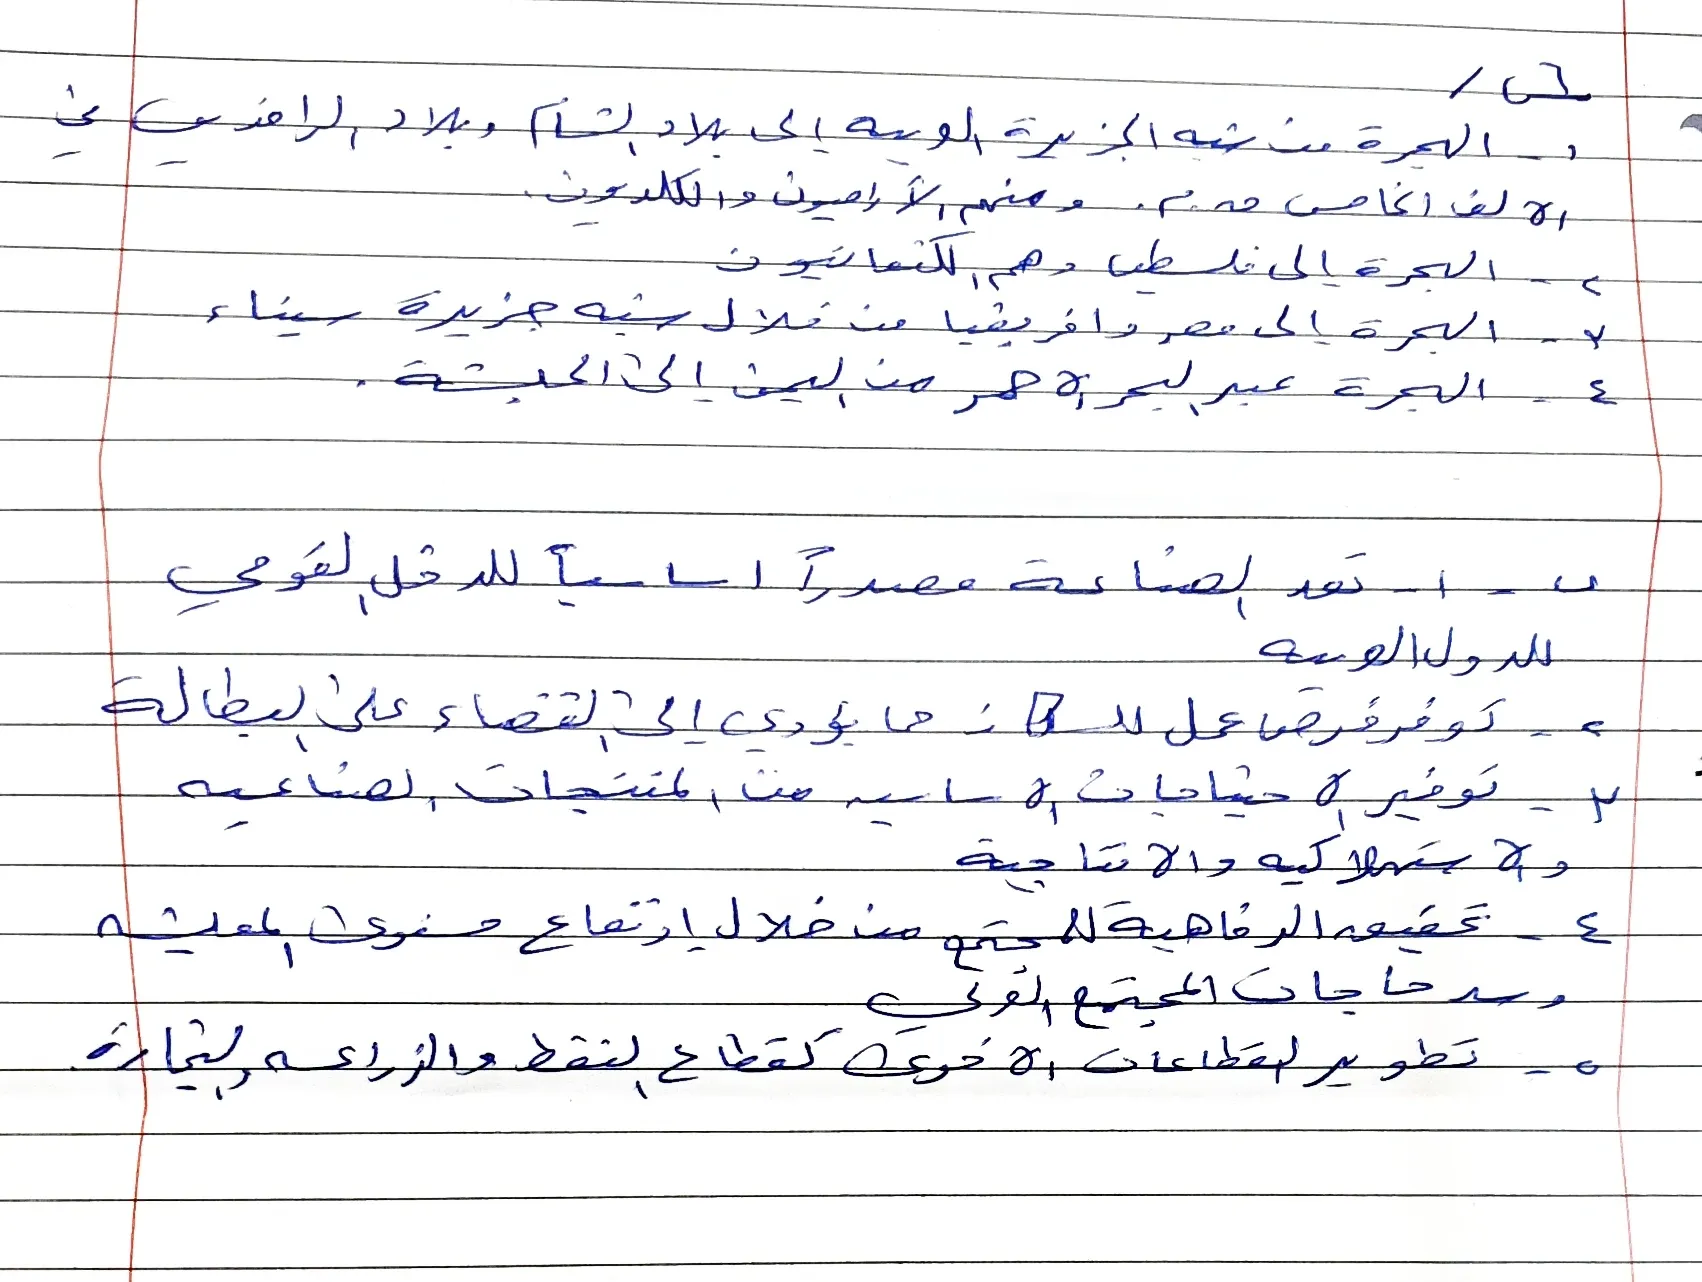 س٦ /
١ - الهجرة من شبه الجزيرة العربيه إلى بلاد الشام وبلاد الرافدين في
الالف الخامس ق.م. ومنهم الآراميون والكلديون.
٢ - الهجرة إلى فلسطين وهم الكنعانيون
٣ - الهجرة إلى مصر وافريقيا من خلال شبه جزيرة سيناء
٤ - الهجرة عبر البحر الاحمر من اليمن إلى الحبشة .
ب - ١ - تعد الصناعة مصدراً اساسياً للدخل القومي
للدول العربيه
٢ - توفر فرص عمل للسكان مما يؤدي إلى القضاء على البطالة
٣ - توفير الاحتياجات الاساسيه من المنتجات الصناعيه
والاستهلاكيه والانتاجية
٤ - تحقيق الرفاهية للمجتمع من خلال إرتفاع مستوى المعيشه
وسد حاجات المجتمع
٥ - تطوير القطاعات الاخرى كقطاع النفط والزراعه والتجارة.